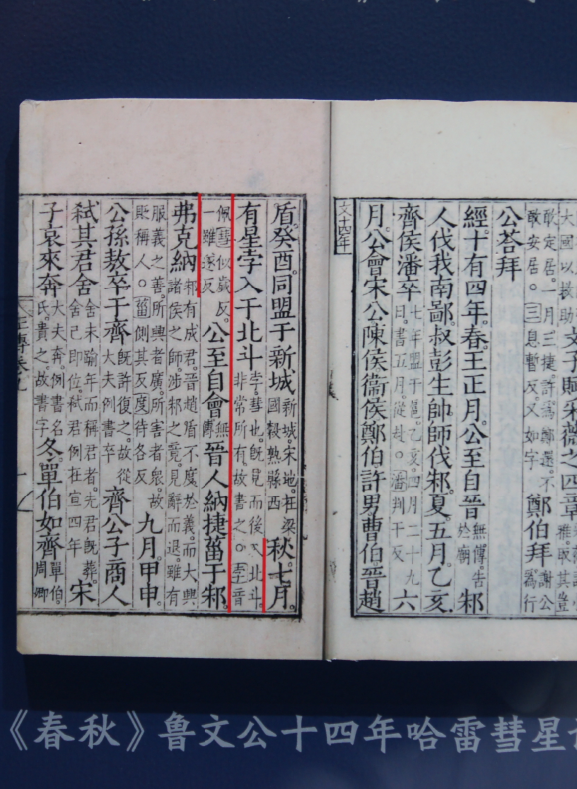 大國以救助
文子賦采薇之四章
敢定居。一月三捷許為鄭還不
敢安居。○三息暫反。又如字
鄭伯拜
謝公
為行
公荅拜
經十有四年。春。王正月。公至自晉
無傳。告
於廟
邾
人伐我南鄙。叔彭生帥師伐邾。夏。五月。乙亥。
齊侯潘卒
七年盟于扈。乙亥。四月二十九
日。書五月。從赴。○潘判干反
六
月。公會宋公陳侯衞侯鄭伯許男曹伯。晉趙
文十四年
盾。癸酉。同盟于新城
新城。宋地。在梁
國穀熟縣西
秋。七月。
有星孛入于北斗
孛。彗也。既見而後入北斗。
非常所有。故書之。○孛音
佩。彗似歲反。
一雖遂反
公至自會
無傳
晉人納捷菑于邾。
弗克納
邾有成君。晉趙盾不度於義。而大興
諸侯之師。涉邾之竟。見辭而退。雖有
服義之善。所興者廣。所害者衆。故
貶稱人。○菑側其反。度待各反
九月。甲申。
公孫敖卒于齊
既許復之。故從
大夫例書卒
齊公子商人
弒其君舍
舍未踰年而稱君者。先君既葬。
舍已即位。弒君例在宣四年
宋
子哀來奔
大夫奔。例書名
氏。貴之。故書字
冬。單伯如齊
單伯。
周卿
《春秋》鲁文公十四年哈雷彗星